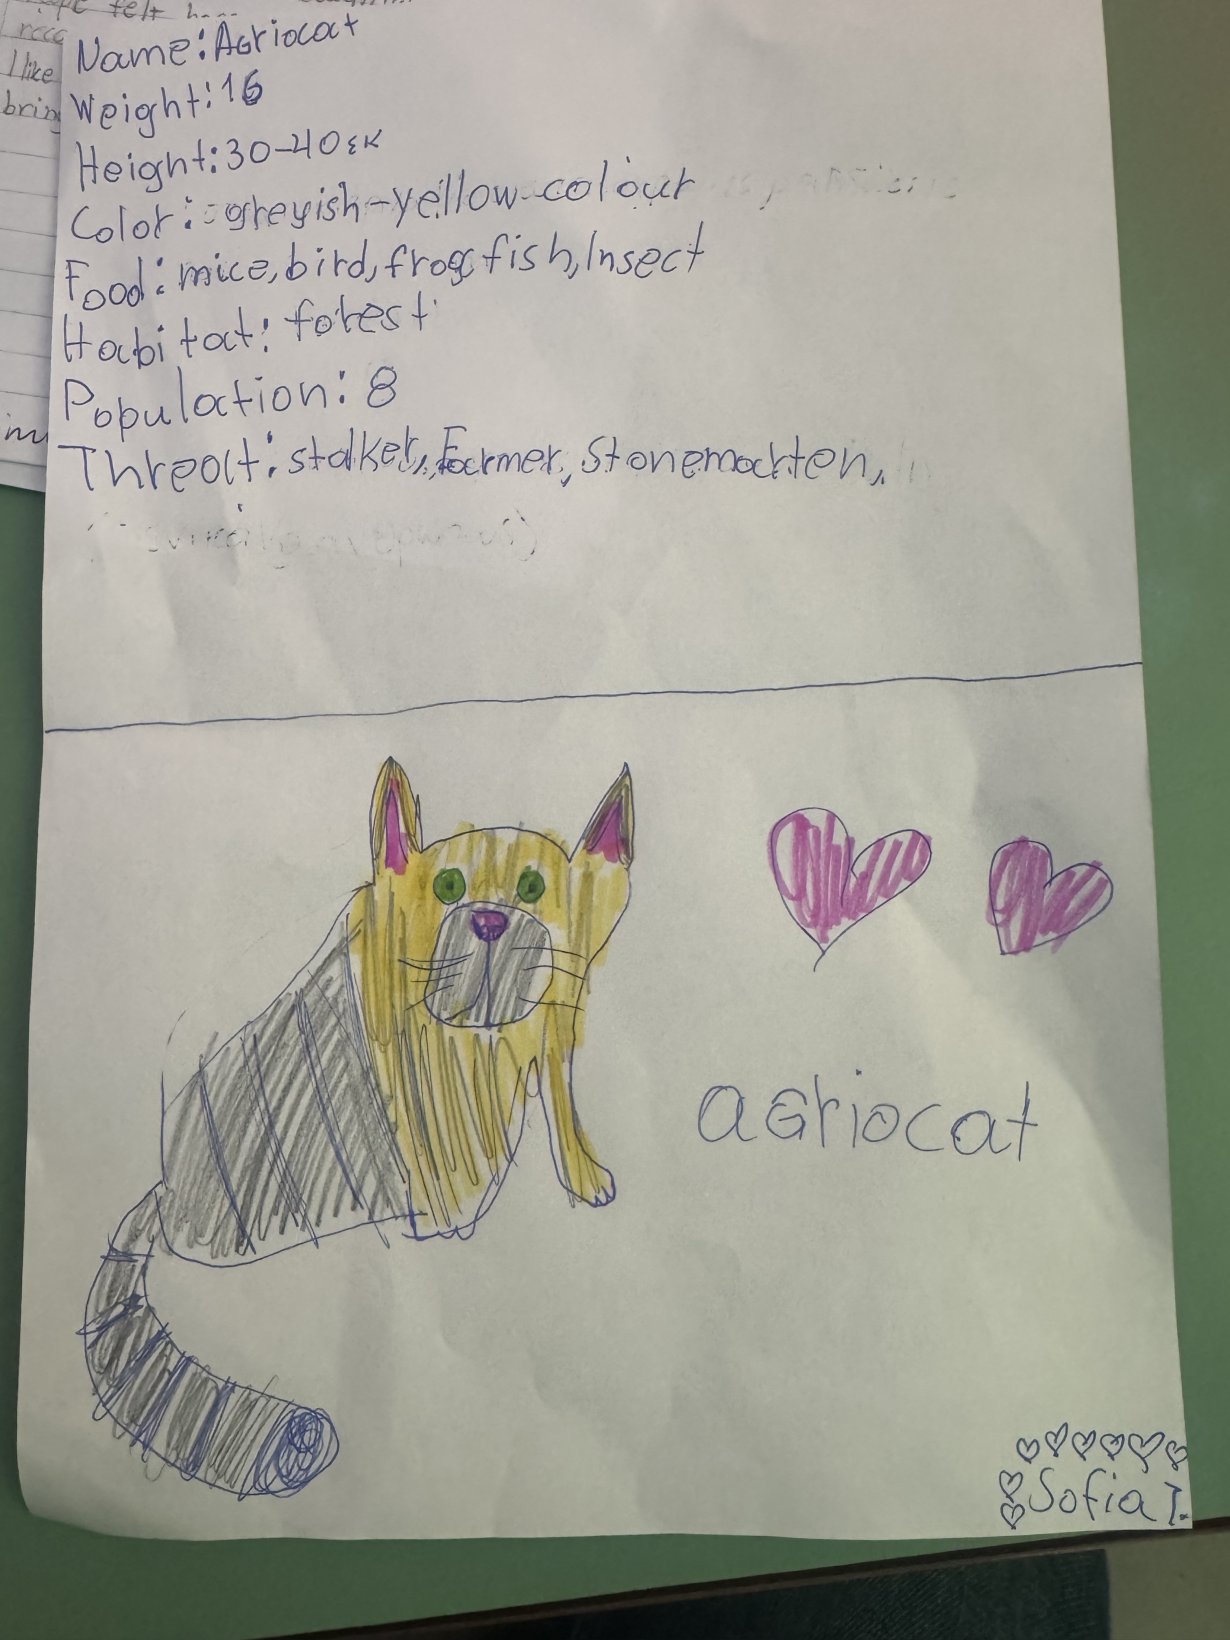 I like
Name: AGriocat
Weight: 16
Height: 30-40 εκ
Color: greyish-yellow colour
Food: mice, bird, frog, fish, Insect
Habitat: forest
Population: 8
Threat: stalker, Farmer, Stonemarten,
aGriocat
Sofia I.